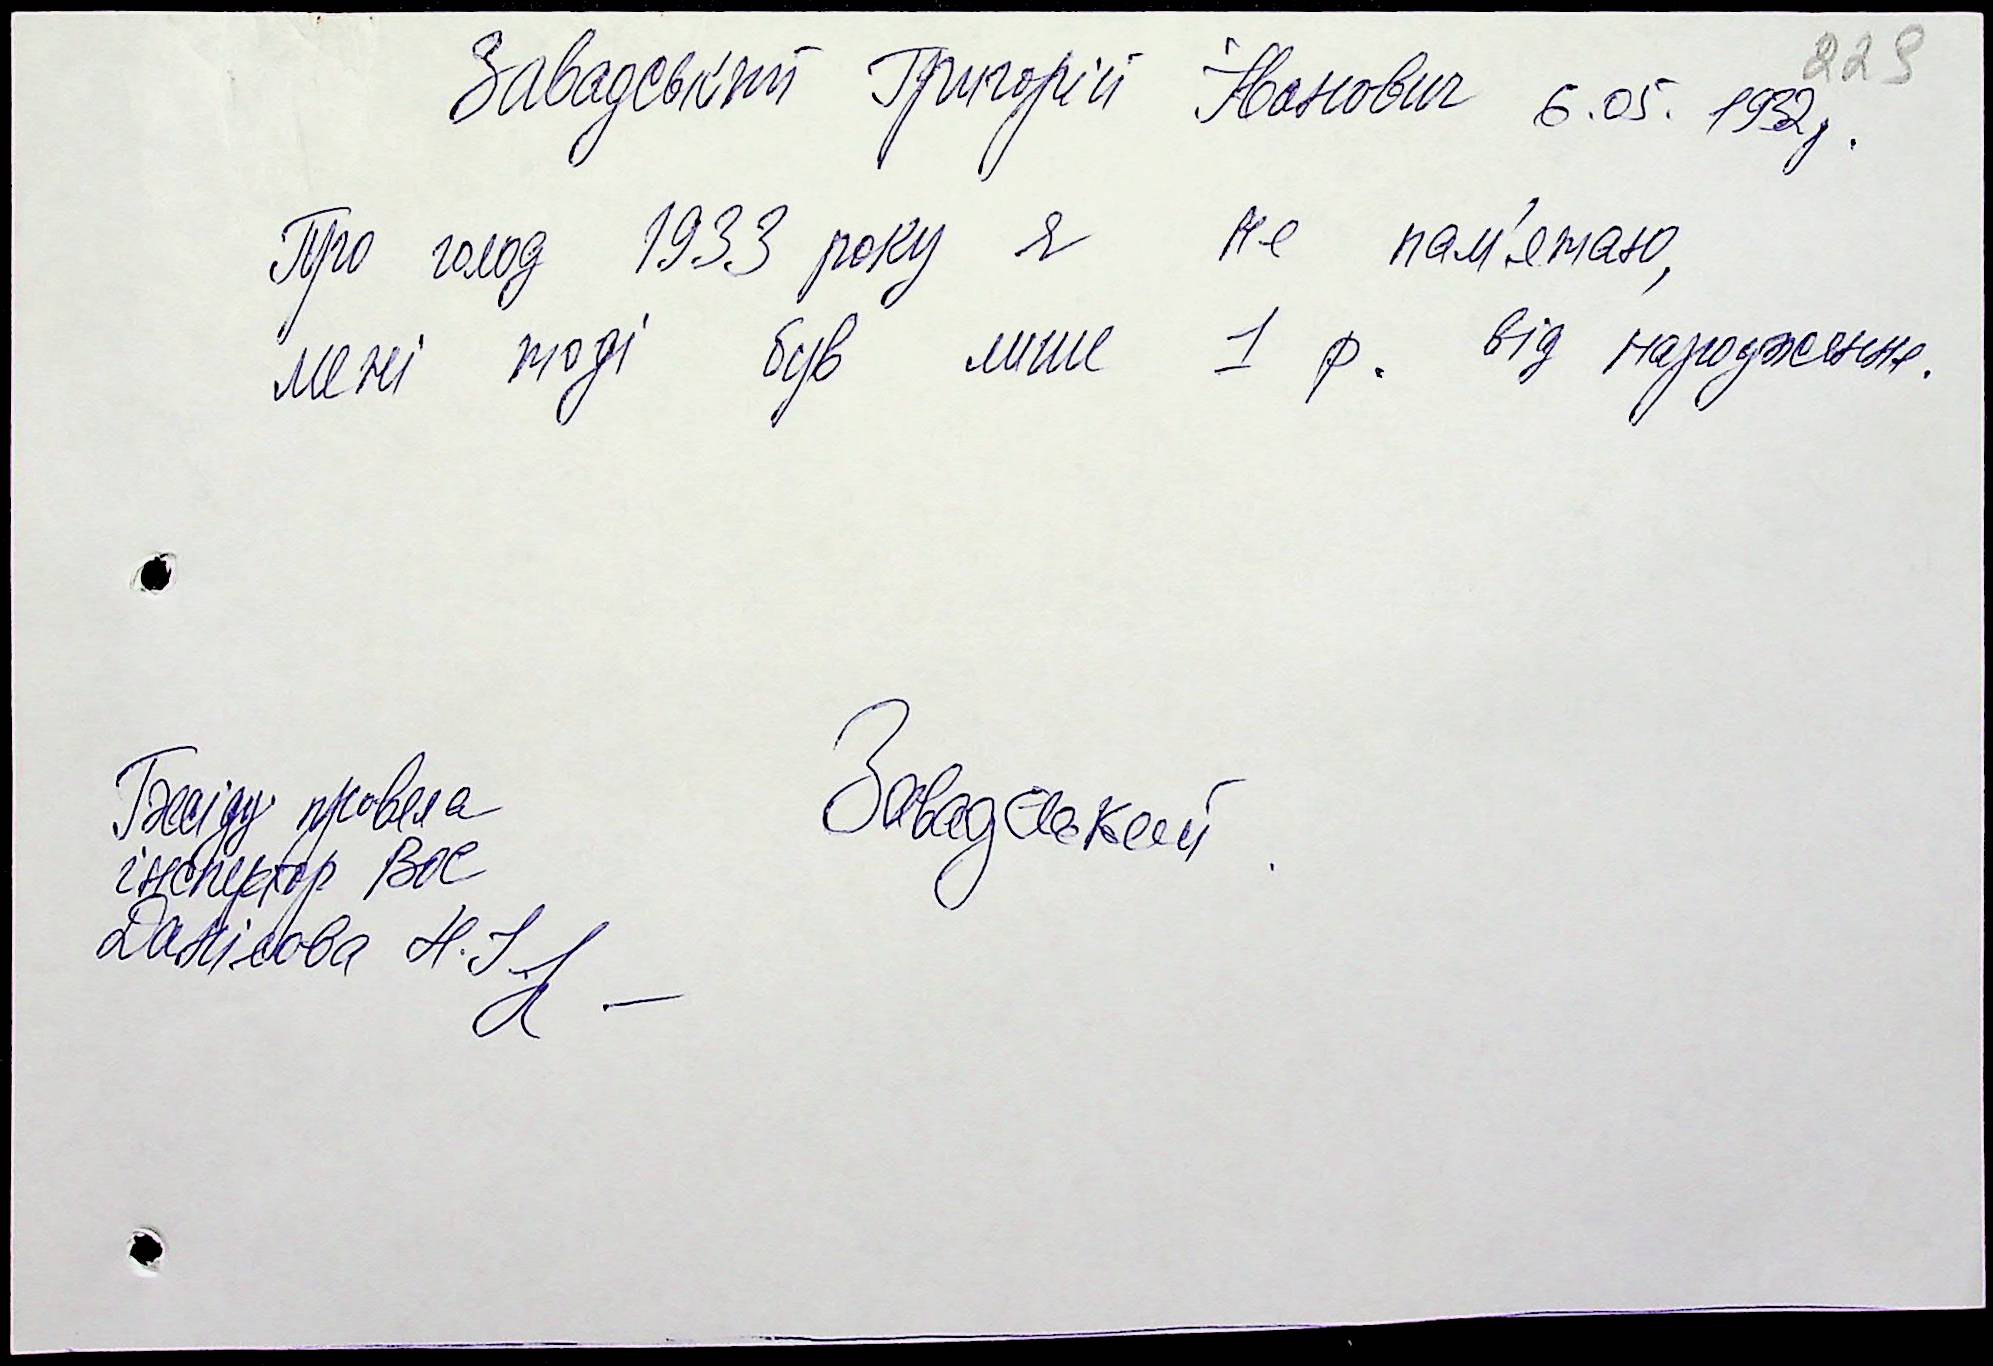 229
Завадський Григорій Іванович 6.05. 1932р.
Про голод 1933 року я не пам'ятаю,
мені тоді був лише 1 р. від народження.
Завадський.
Бесіду провела
інспектор ВОС
Данілова Н.І.